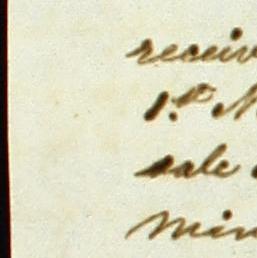 receiv
1st N
sale
Min